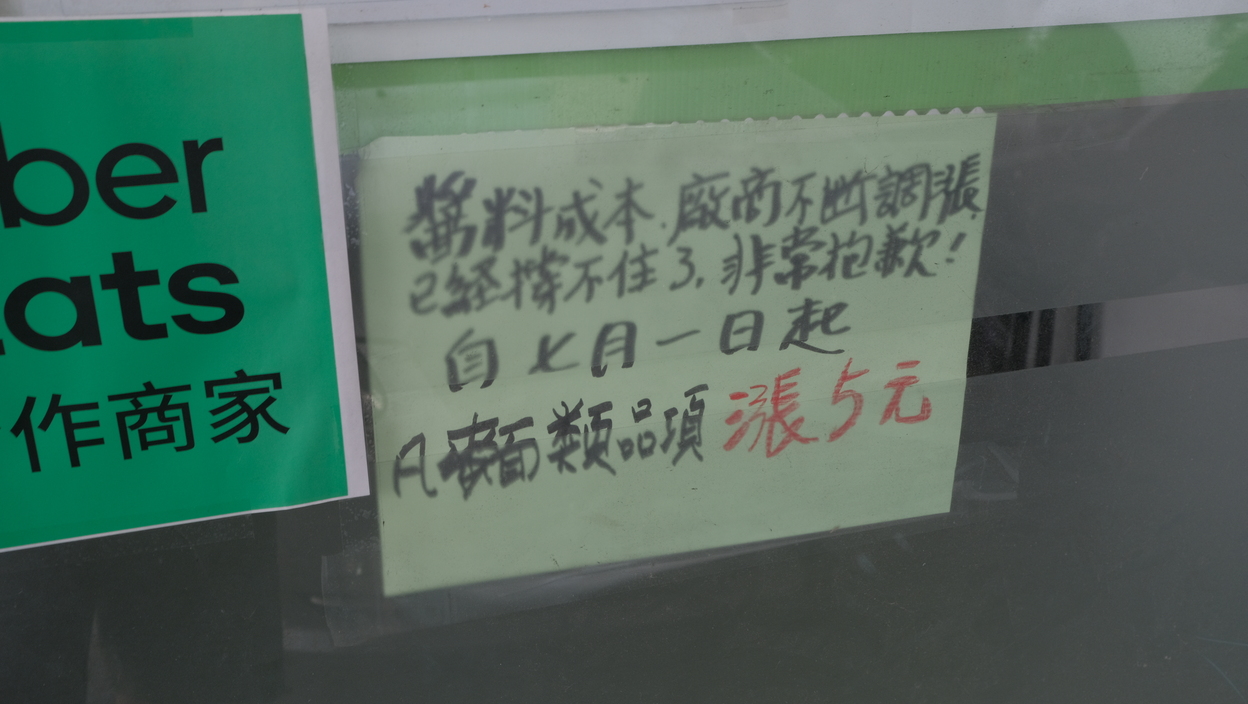 ber
ats
作商家
醬料成本.廠商不斷調漲
已經撐不住了,非常抱歉!
自七月一日起
凡麵類品項漲5元